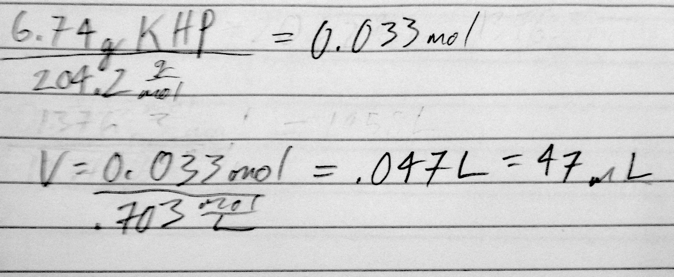 6.74 g KHP / 204.2 g/mol = 0.033 mol
V = 0.033 mol / .703 mol/L = .047 L = 47 mL